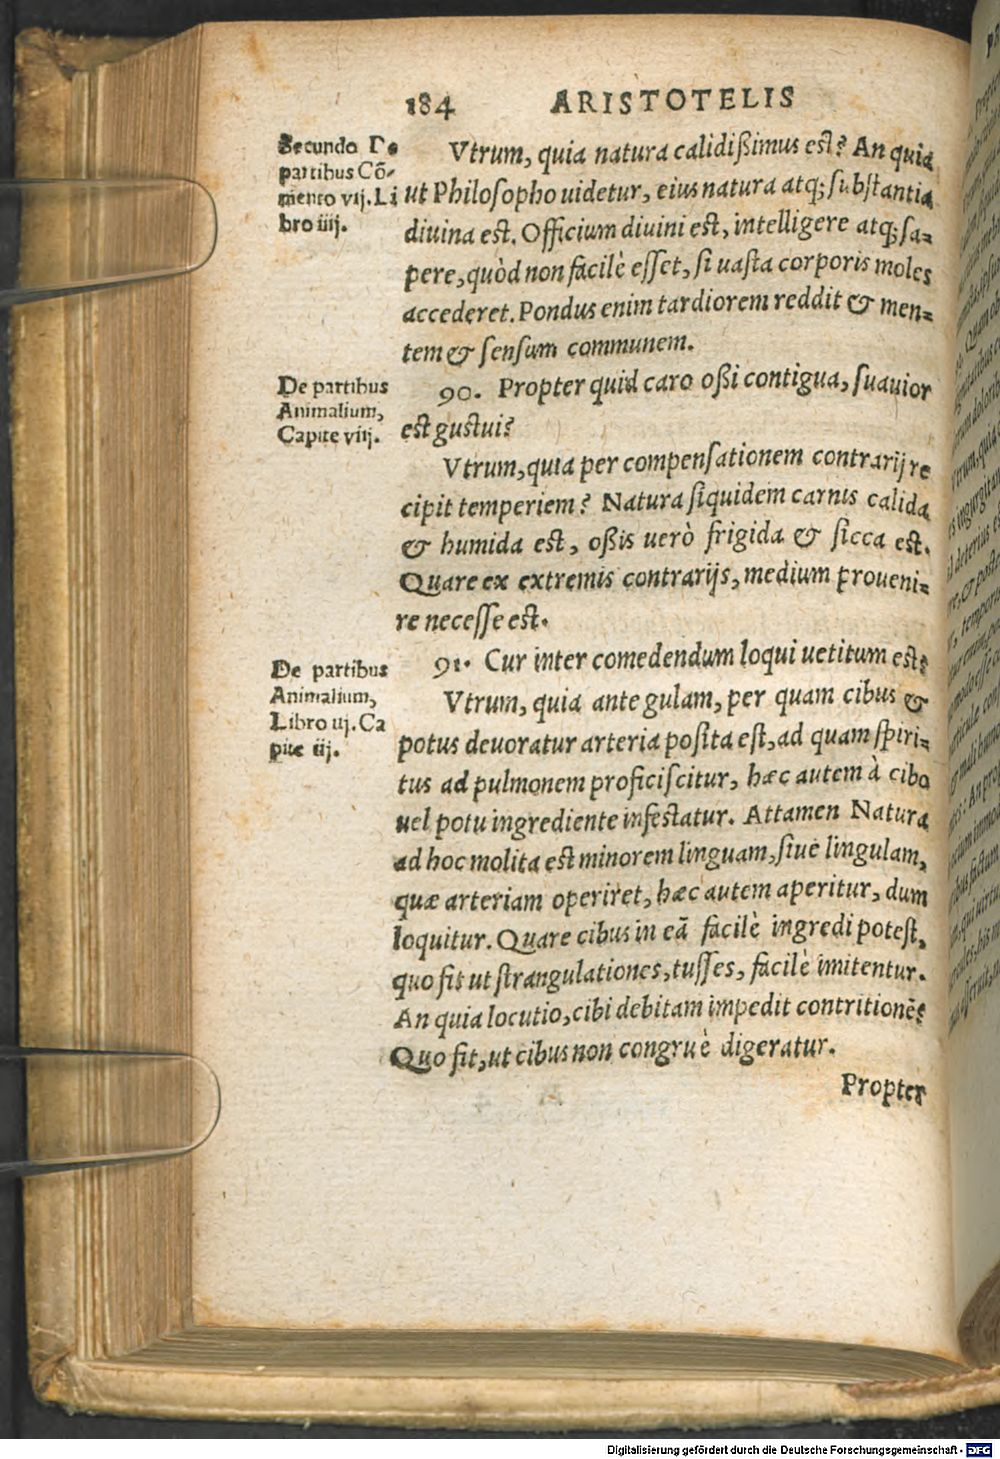 184 ARISTOTELIS
Secundo De
partibus Cõ-
mento vij. Li
bro iiij.
Vtrum, quia natura calidißimus est? An quia
ut Philosopho uidetur, eius natura atq; substantia
diuina est. Officium diuini est, intelligere atq; sa=
pere, quòd non facilè esset, si uasta corporis moles
accederet. Pondus enim tardiorem reddit & men=
tem & sensum communem.
De partibus
Animalium,
Capite viij.
90. Propter quid caro oßi contigua, suauior
est gustui?
Vtrum, quia per compensationem contrarij re
cipit temperiem? Natura siquidem carnis calida
& humida est, oßis uerò frigida & sicca est.
Quare ex extremis contrarijs, medium proueni=
re necesse est.
De partibus
Animalium,
Libro iij. Ca
pite iij.
91. Cur inter comedendum loqui uetitum est?
Vtrum, quia ante gulam, per quam cibus &
potus deuoratur arteria posita est, ad quam spiri=
tus ad pulmonem proficiscitur, hæc autem à cibo
uel potu ingrediente infestatur. Attamen Natura
ad hoc molita est minorem linguam, siue lingulam,
quæ arteriam operiret, hæc autem aperitur, dum
loquitur. Quare cibus in eã facilè ingredi potest,
quo fit ut strangulationes, tusses, facilè imitentur.
An quia locutio, cibi debitam impedit contritionẽ?
Quo fit, ut cibus non congruè digeratur.
Propter
Digitalisierung gefördert durch die Deutsche Forschungsgemeinschaft - DFG